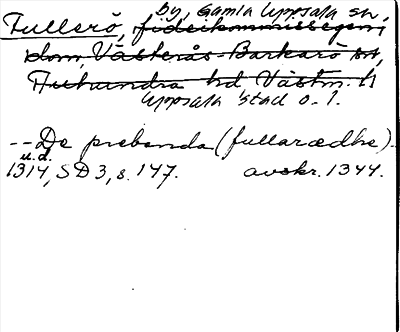 by, Gamla Uppsala sn,
Fullerö, fideikommissegen-
dom, Västerås-Barkarö sn,
Tuhundra hd Västm. l.
Uppsala stad o. l.
--De prebenda (fullarædhe)..
u.d.
1314, SD 3, s. 147. avskr. 1344.